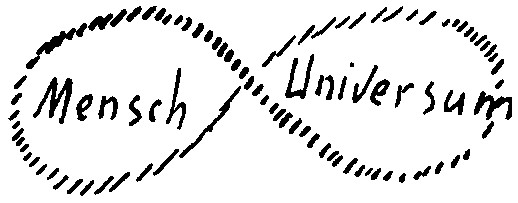 Mensch Universum